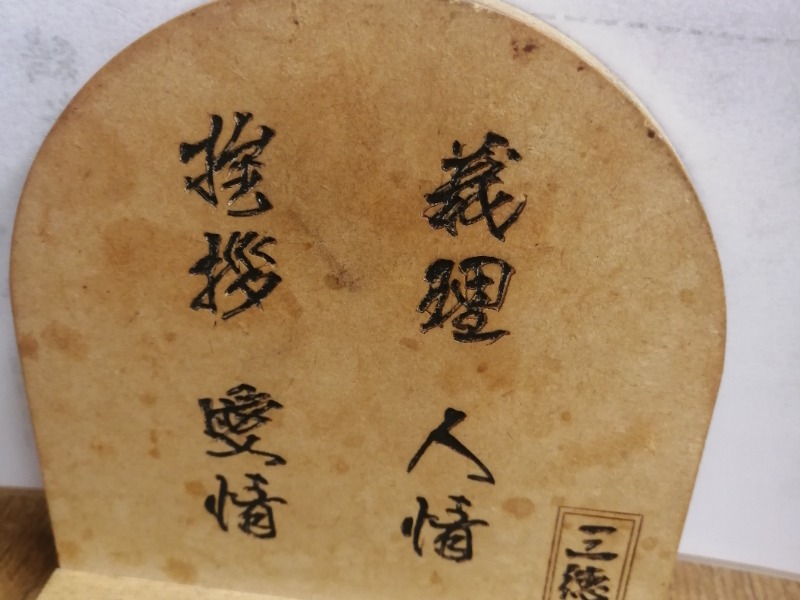 義理 人情
挨拶 愛情
三徳